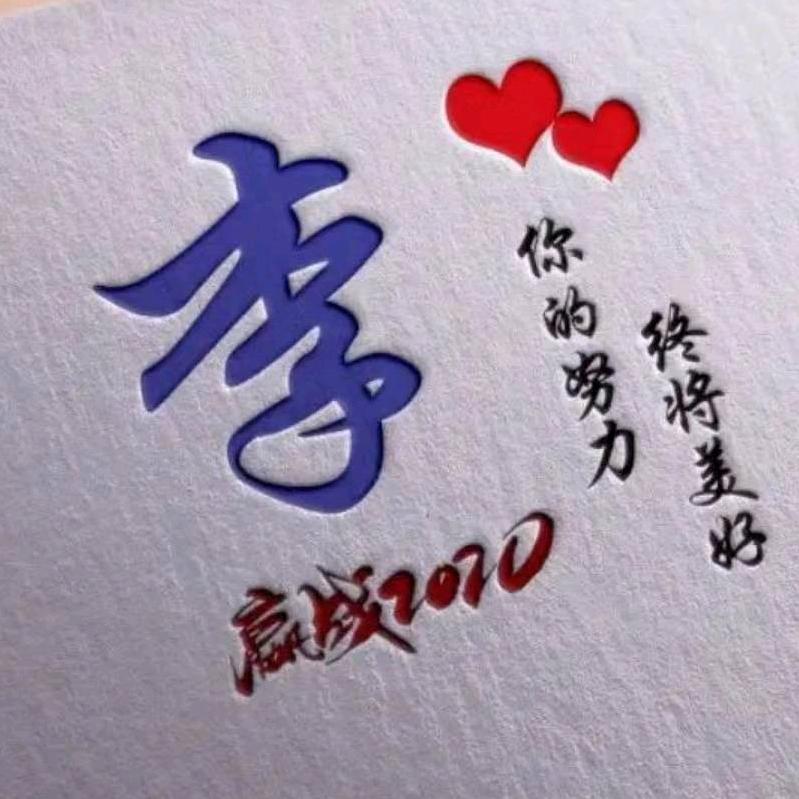 李
你的努力
终将美好
赢战2020